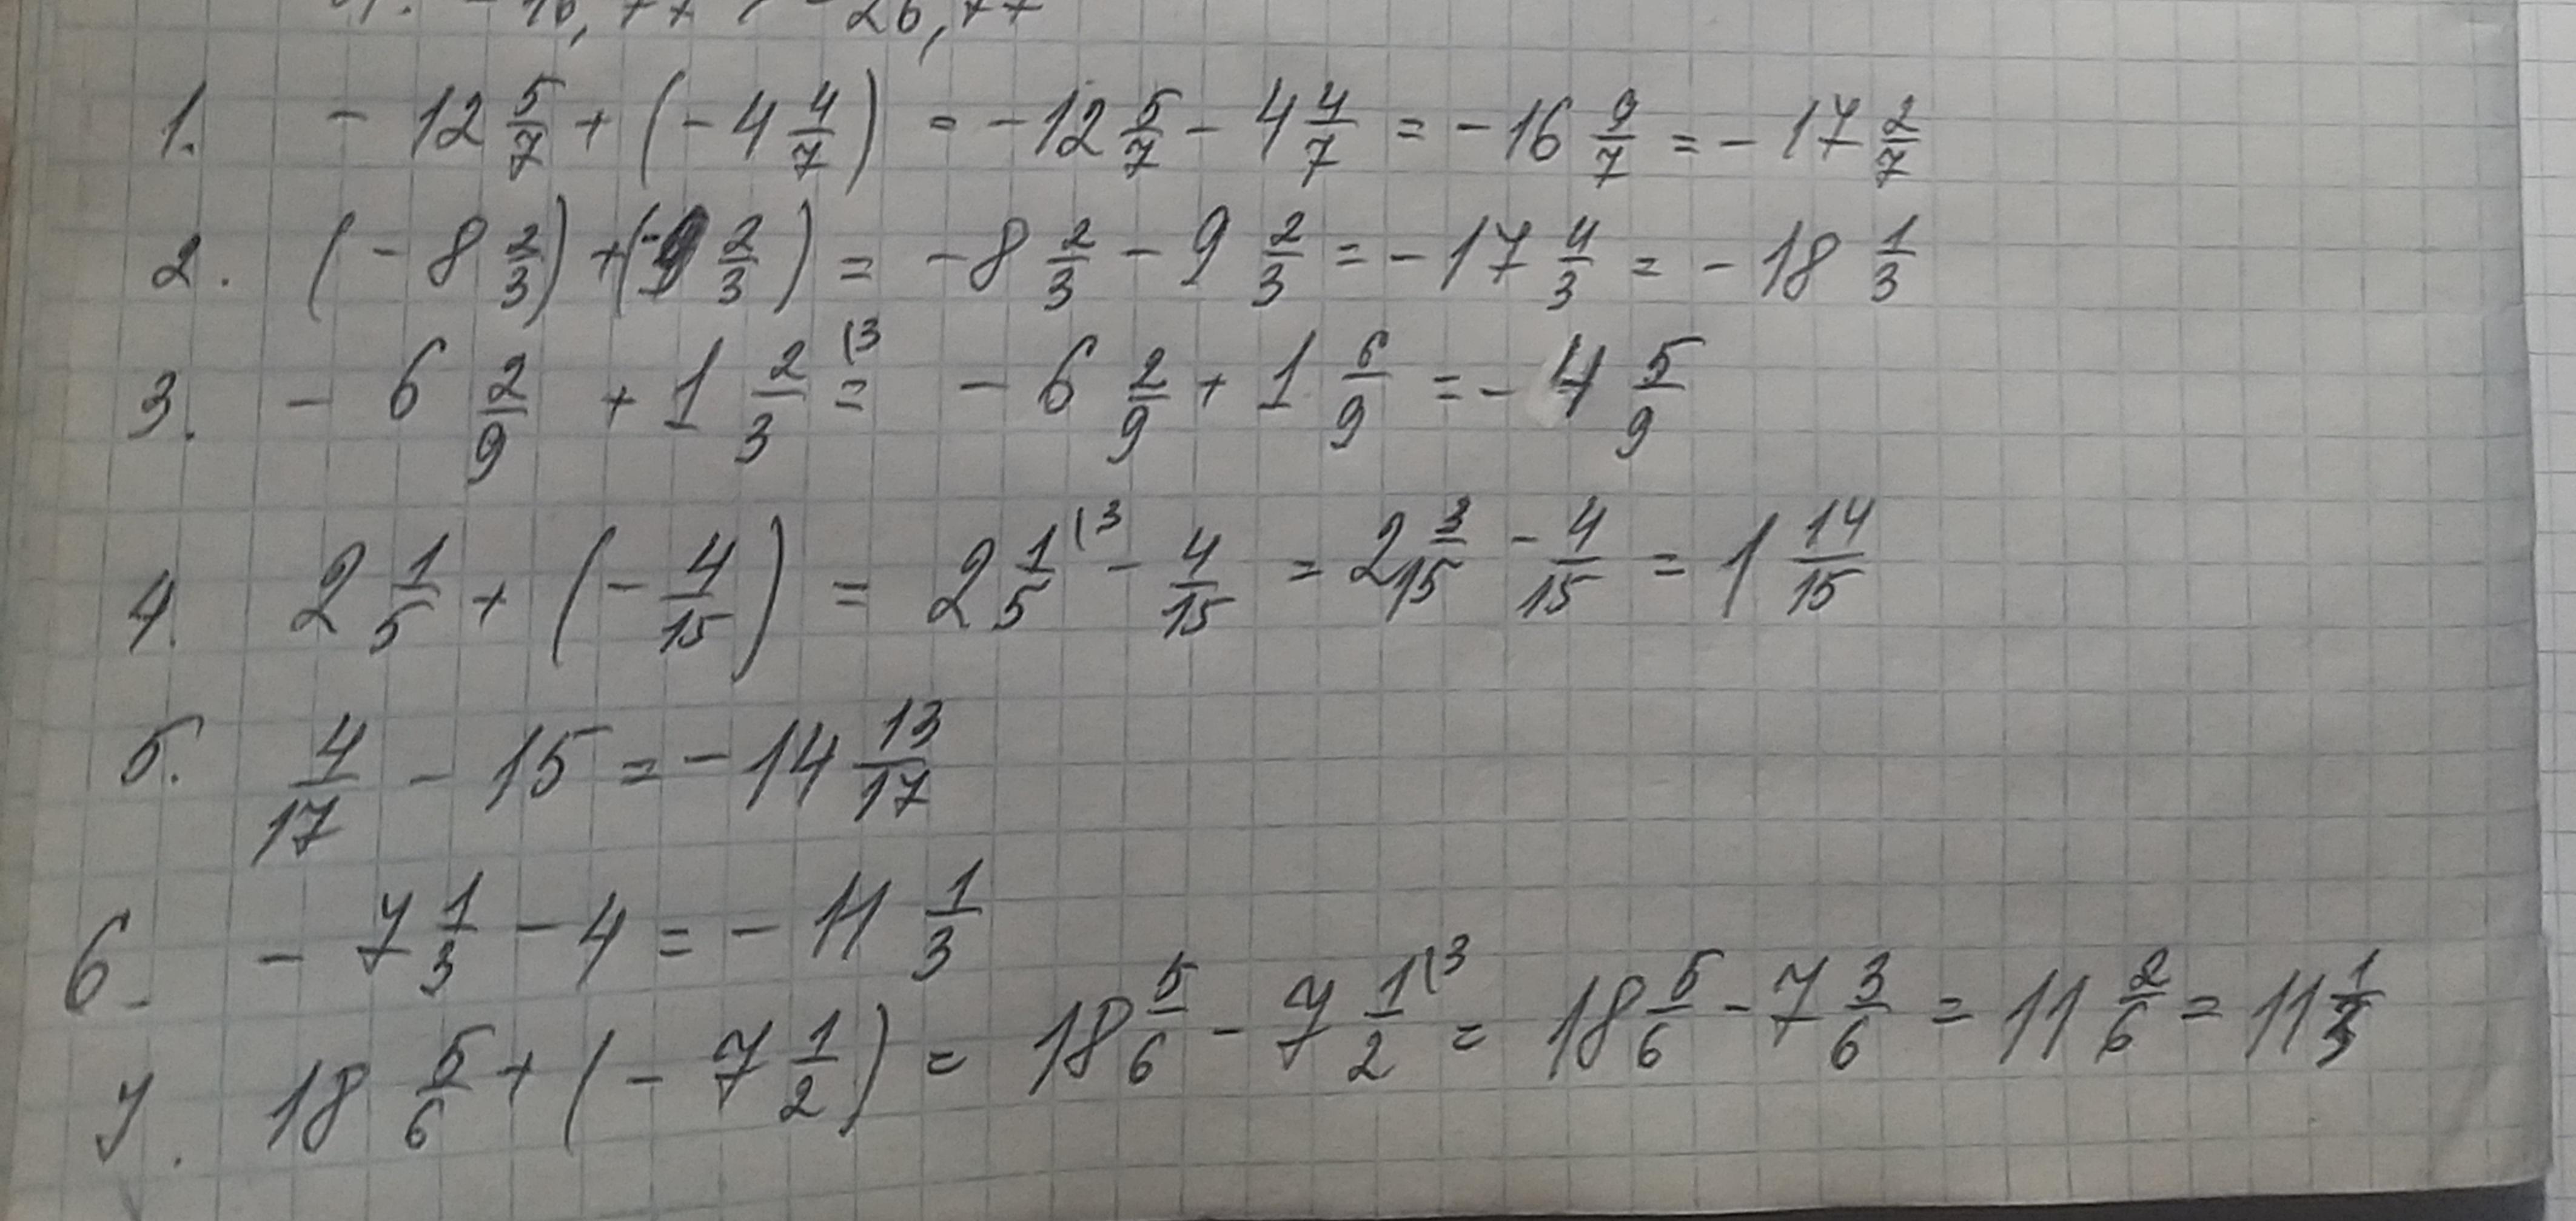 1. - 12 5/7 + (- 4 4/7) = - 12 5/7 - 4 4/7 = - 16 9/7 = - 17 2/7
2. (- 8 2/3) + (- 9 2/3) = - 8 2/3 - 9 2/3 = - 17 4/3 = - 18 1/3
3. - 6 2/9 + 1 2/3 (3 = - 6 2/9 + 1 6/9 = - 4 5/9
4. 2 1/5 + (- 4/15) = 2 1/5 (3 - 4/15 = 2 3/15 - 4/15 = 1 14/15
5. 4/17 - 15 = - 14 13/17
6. - 7 1/3 - 4 = - 11 1/3
7. 18 5/6 + (- 7 1/2) = 18 5/6 - 7 1/2 (3 = 18 5/6 - 7 3/6 = 11 2/6 = 11 1/3